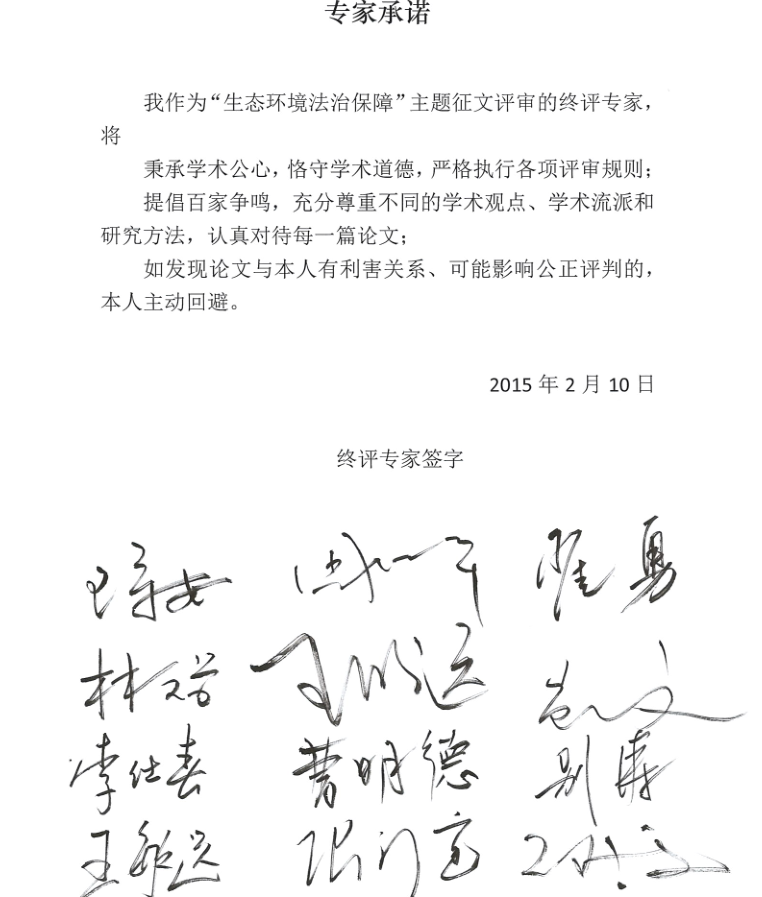 专家承诺
我作为“生态环境法治保障”主题征文评审的终评专家，
将
秉承学术公心，恪守学术道德，严格执行各项评审规则；
提倡百家争鸣，充分尊重不同的学术观点、学术流派和
研究方法，认真对待每一篇论文；
如发现论文与本人有利害关系、可能影响公正评判的，
本人主动回避。
2015 年 2 月 10 日
终评专家签字
李仕春 曹明德 别涛